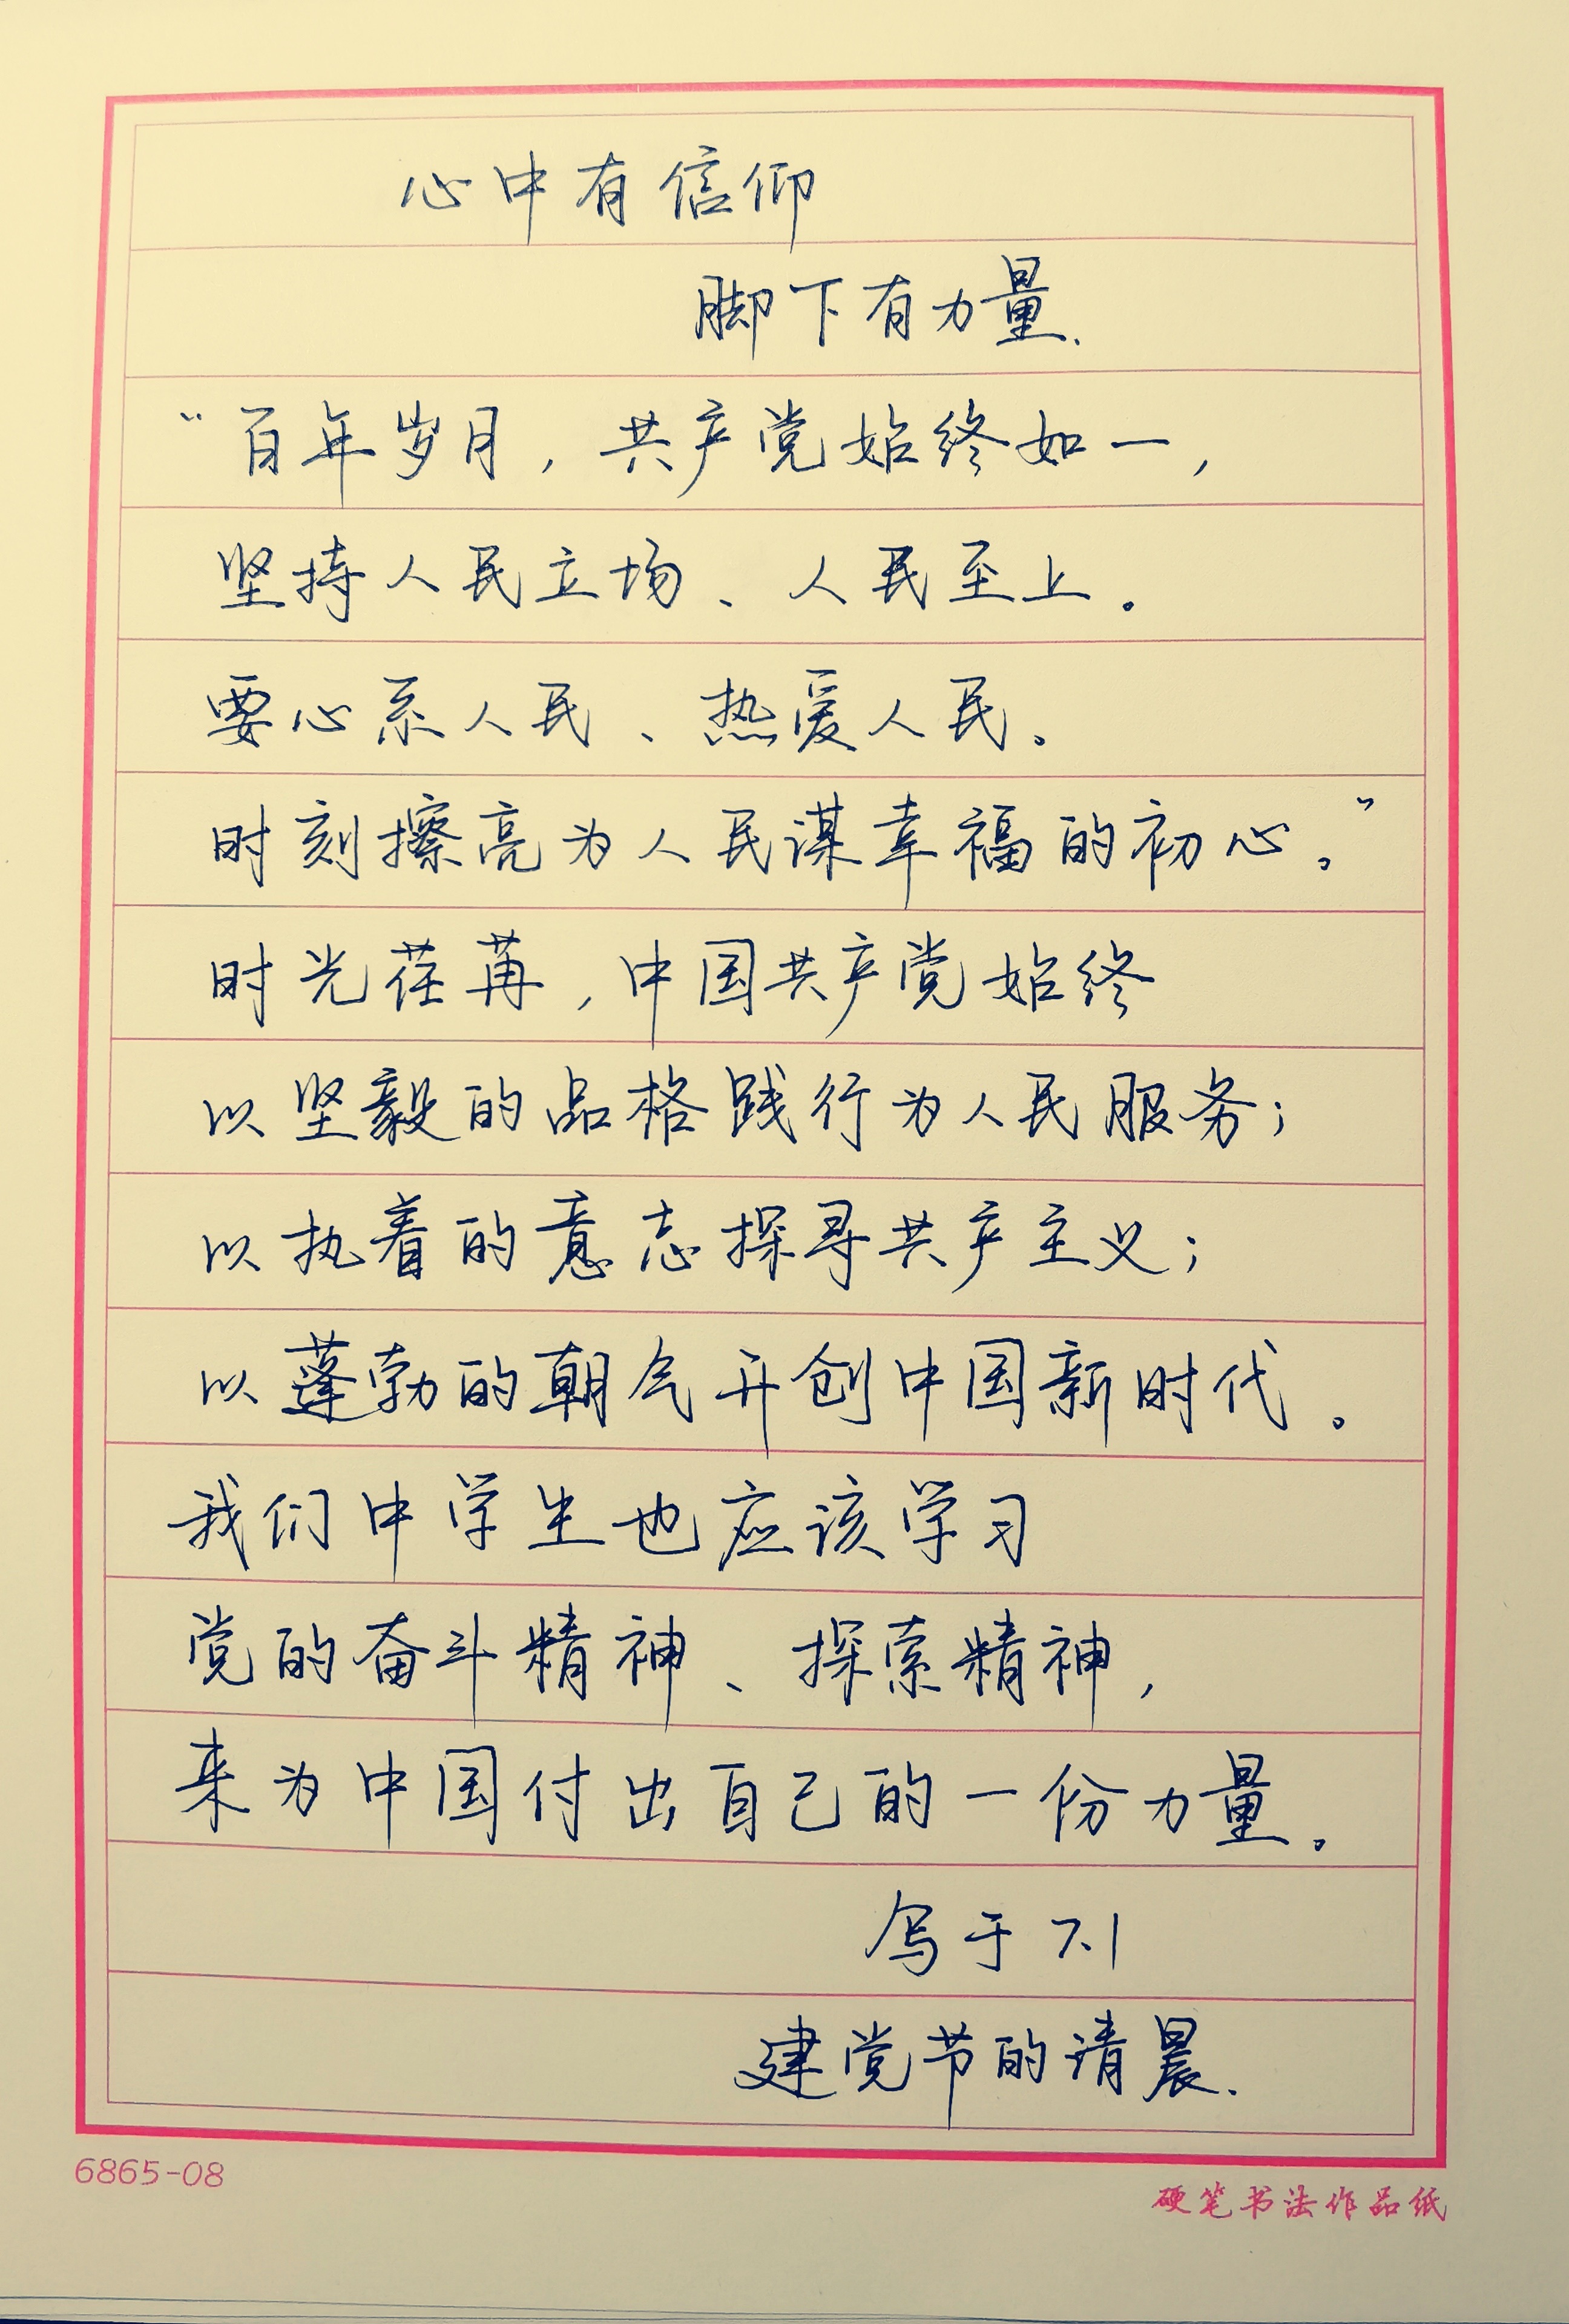 心中有信仰
脚下有力量.
“百年岁月，共产党始终如一，
坚持人民立场、人民至上。
要心系人民、热爱人民。
时刻擦亮为人民谋幸福的初心。”
时光荏苒，中国共产党始终
以坚毅的品格践行为人民服务；
以执着的意志探寻共产主义；
以蓬勃的朝气开创中国新时代。
我们中学生也应该学习
党的奋斗精神、探索精神，
来为中国付出自己的一份力量。
写于7.1
建党节的清晨.
6865-08
硬笔书法作品纸